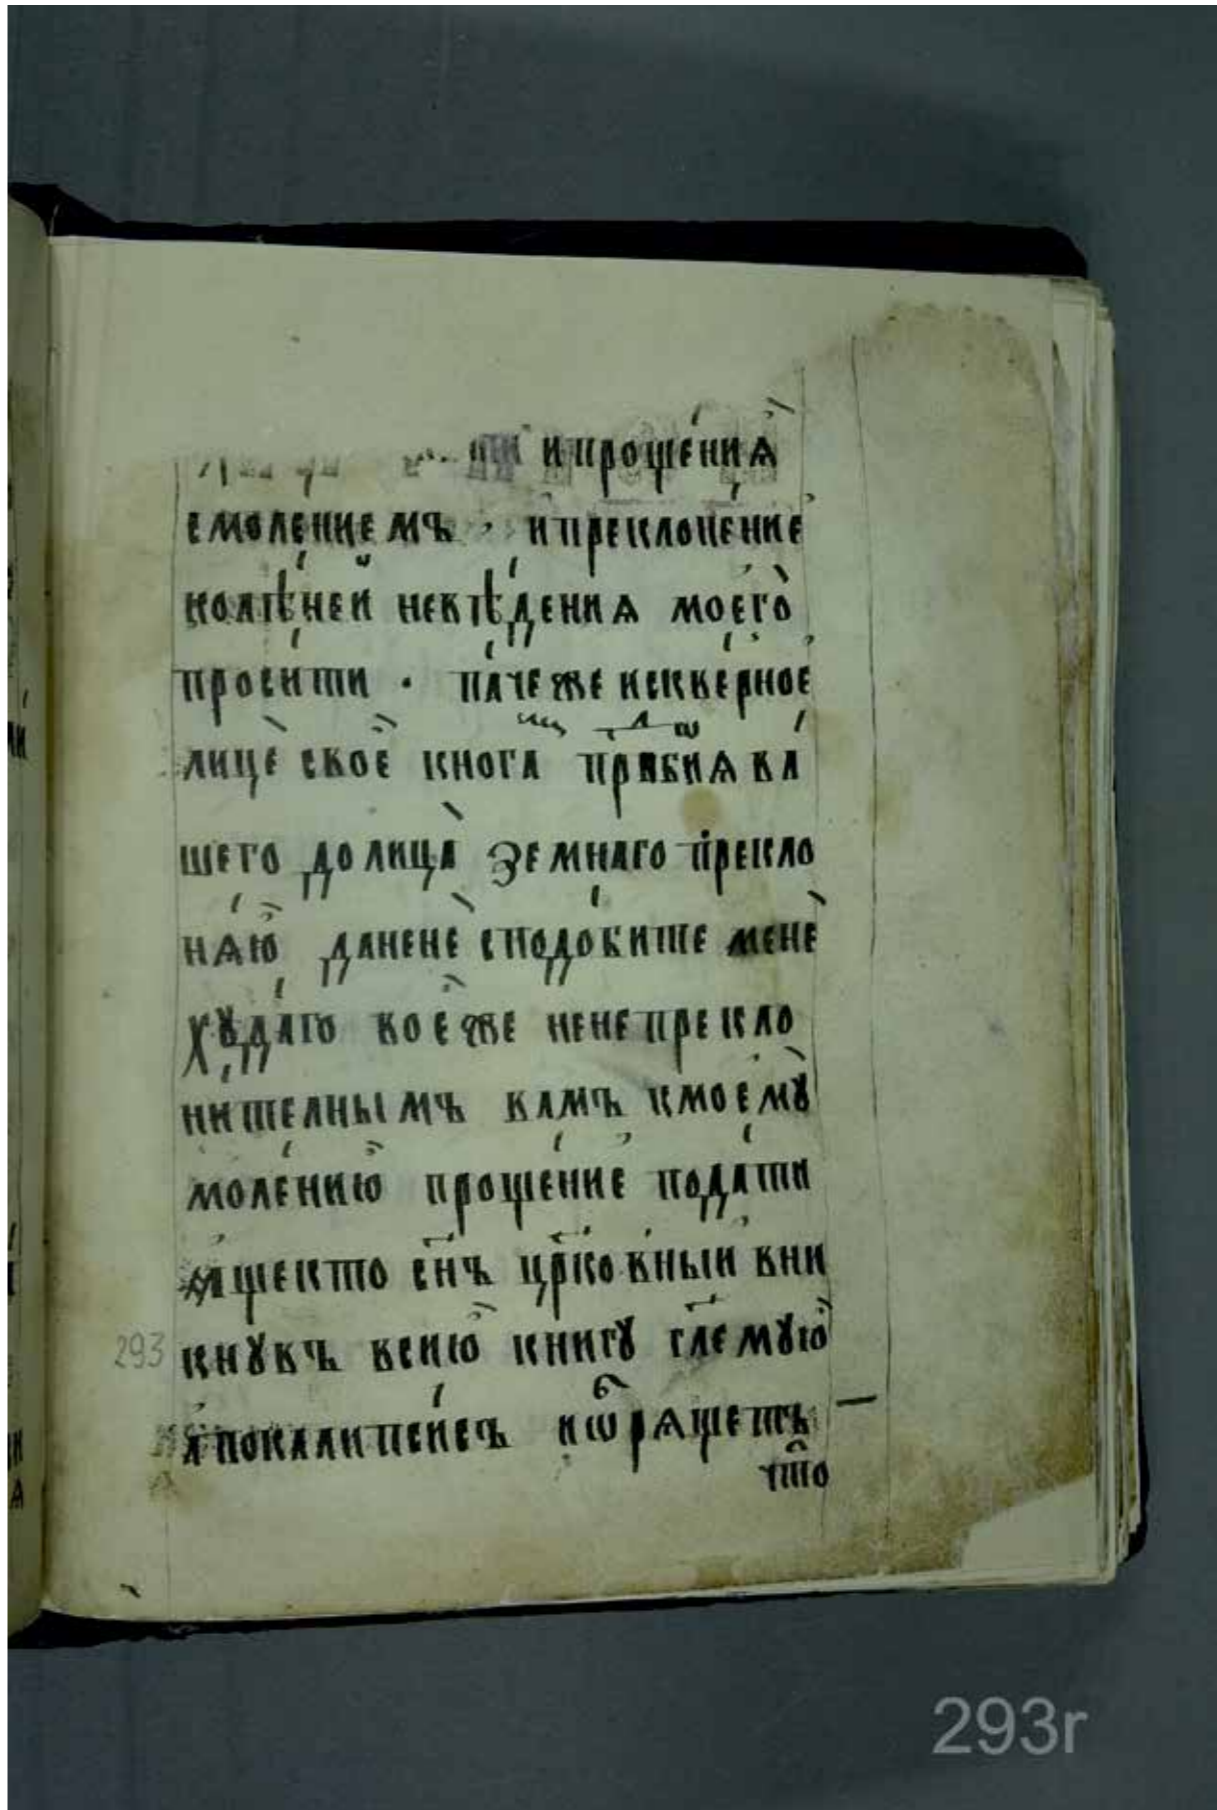 и прощениѧ
с молениемъ · и преклонение
колѣней невѣдениѧ моего
просити · паче же и скверное
лице свое многа
шего до лица земнаго прекло
нѧю да не не сподобите мене
хꙋдаго во еже не непрекло
нителнымъ вамъ к моемꙋ
молению прощение подати
аще кто сн҃ъ цр҃ковныи вни
кнꙋвъ в сию книгꙋ гл҃емꙋю
апокалипсисъ и ѡбрѧщетъ
что
293
293r